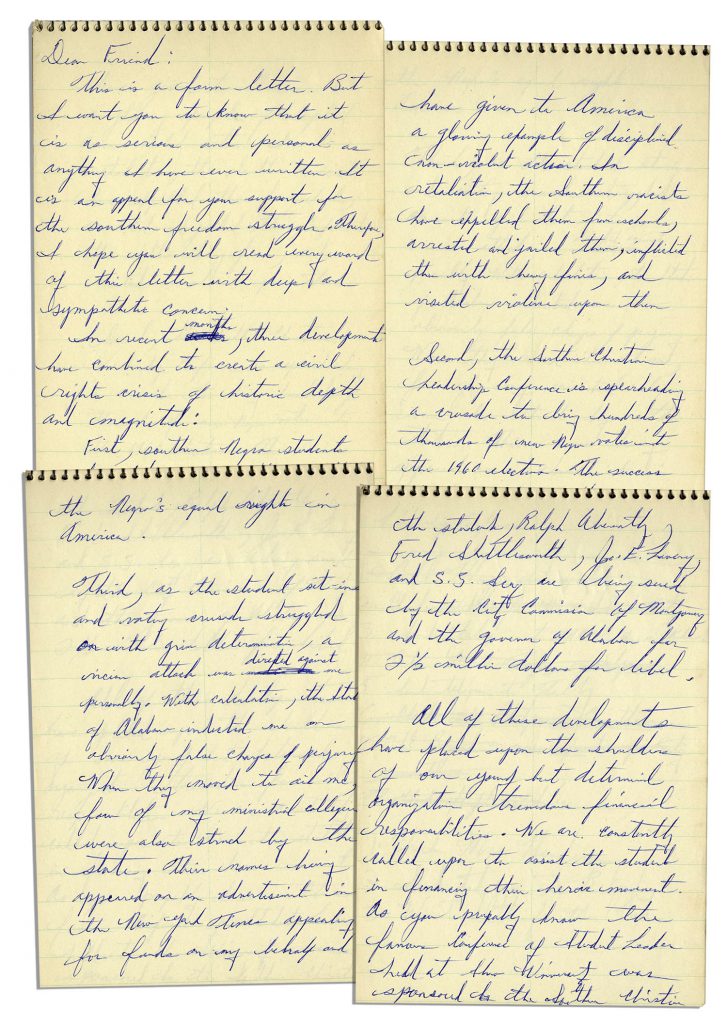 Dear Friend:
This is a form letter. But
I want you to know that it
is as serious and personal as
anything I have ever written. It
is an appeal for your support for
the southern freedom struggle. Therefore,
I hope you will read every word
of this letter with deep and
sympathetic concern.
In recent months, three developments
have combined to create a civil
rights crisis of historic depth
and magnitude:
First, southern Negro students
have given to America
a glowing example of disciplined
non-violent action. In
retaliation, the Southern racists
have expelled them from schools,
arrested and jailed them, inflicted
them with heavy fines, and
visited violence upon them
Second, the Southern Christian
Leadership Conference is spearheading
a crusade to bring hundreds of
thousands of new Negro voters into
the 1960 election. The success
the Negro's equal rights in
America.
Third, as the student sit-ins
and voting crusade struggled
on with grim determination, a
vicious attack was directed against me
personally. With calculation, the State
of Alabama indicted me on
obviously false charges of perjury
When they moved to me,
four of my ministerial colleagues
were also by the
state. Their names having
appeared on an advertisement in
the New York Times appealing
for funds on my behalf and
the students, Ralph Abernathy,
Fred Shuttlesworth, Joe E. Lowery,
and S.S. Seay are being sued
by the City Commission of Montgomery
and the governor of Alabama for
2 1/2 million dollars for libel.
All of these developments
have placed upon the shoulders
of our young but determined
organization tremendous financial
responsibilities. We are constantly
called upon to assist the students
in financing their heroic movement.
As you probably know the
famous Conference of Student Leaders
held at Shaw University was
sponsored by the Southern Christian